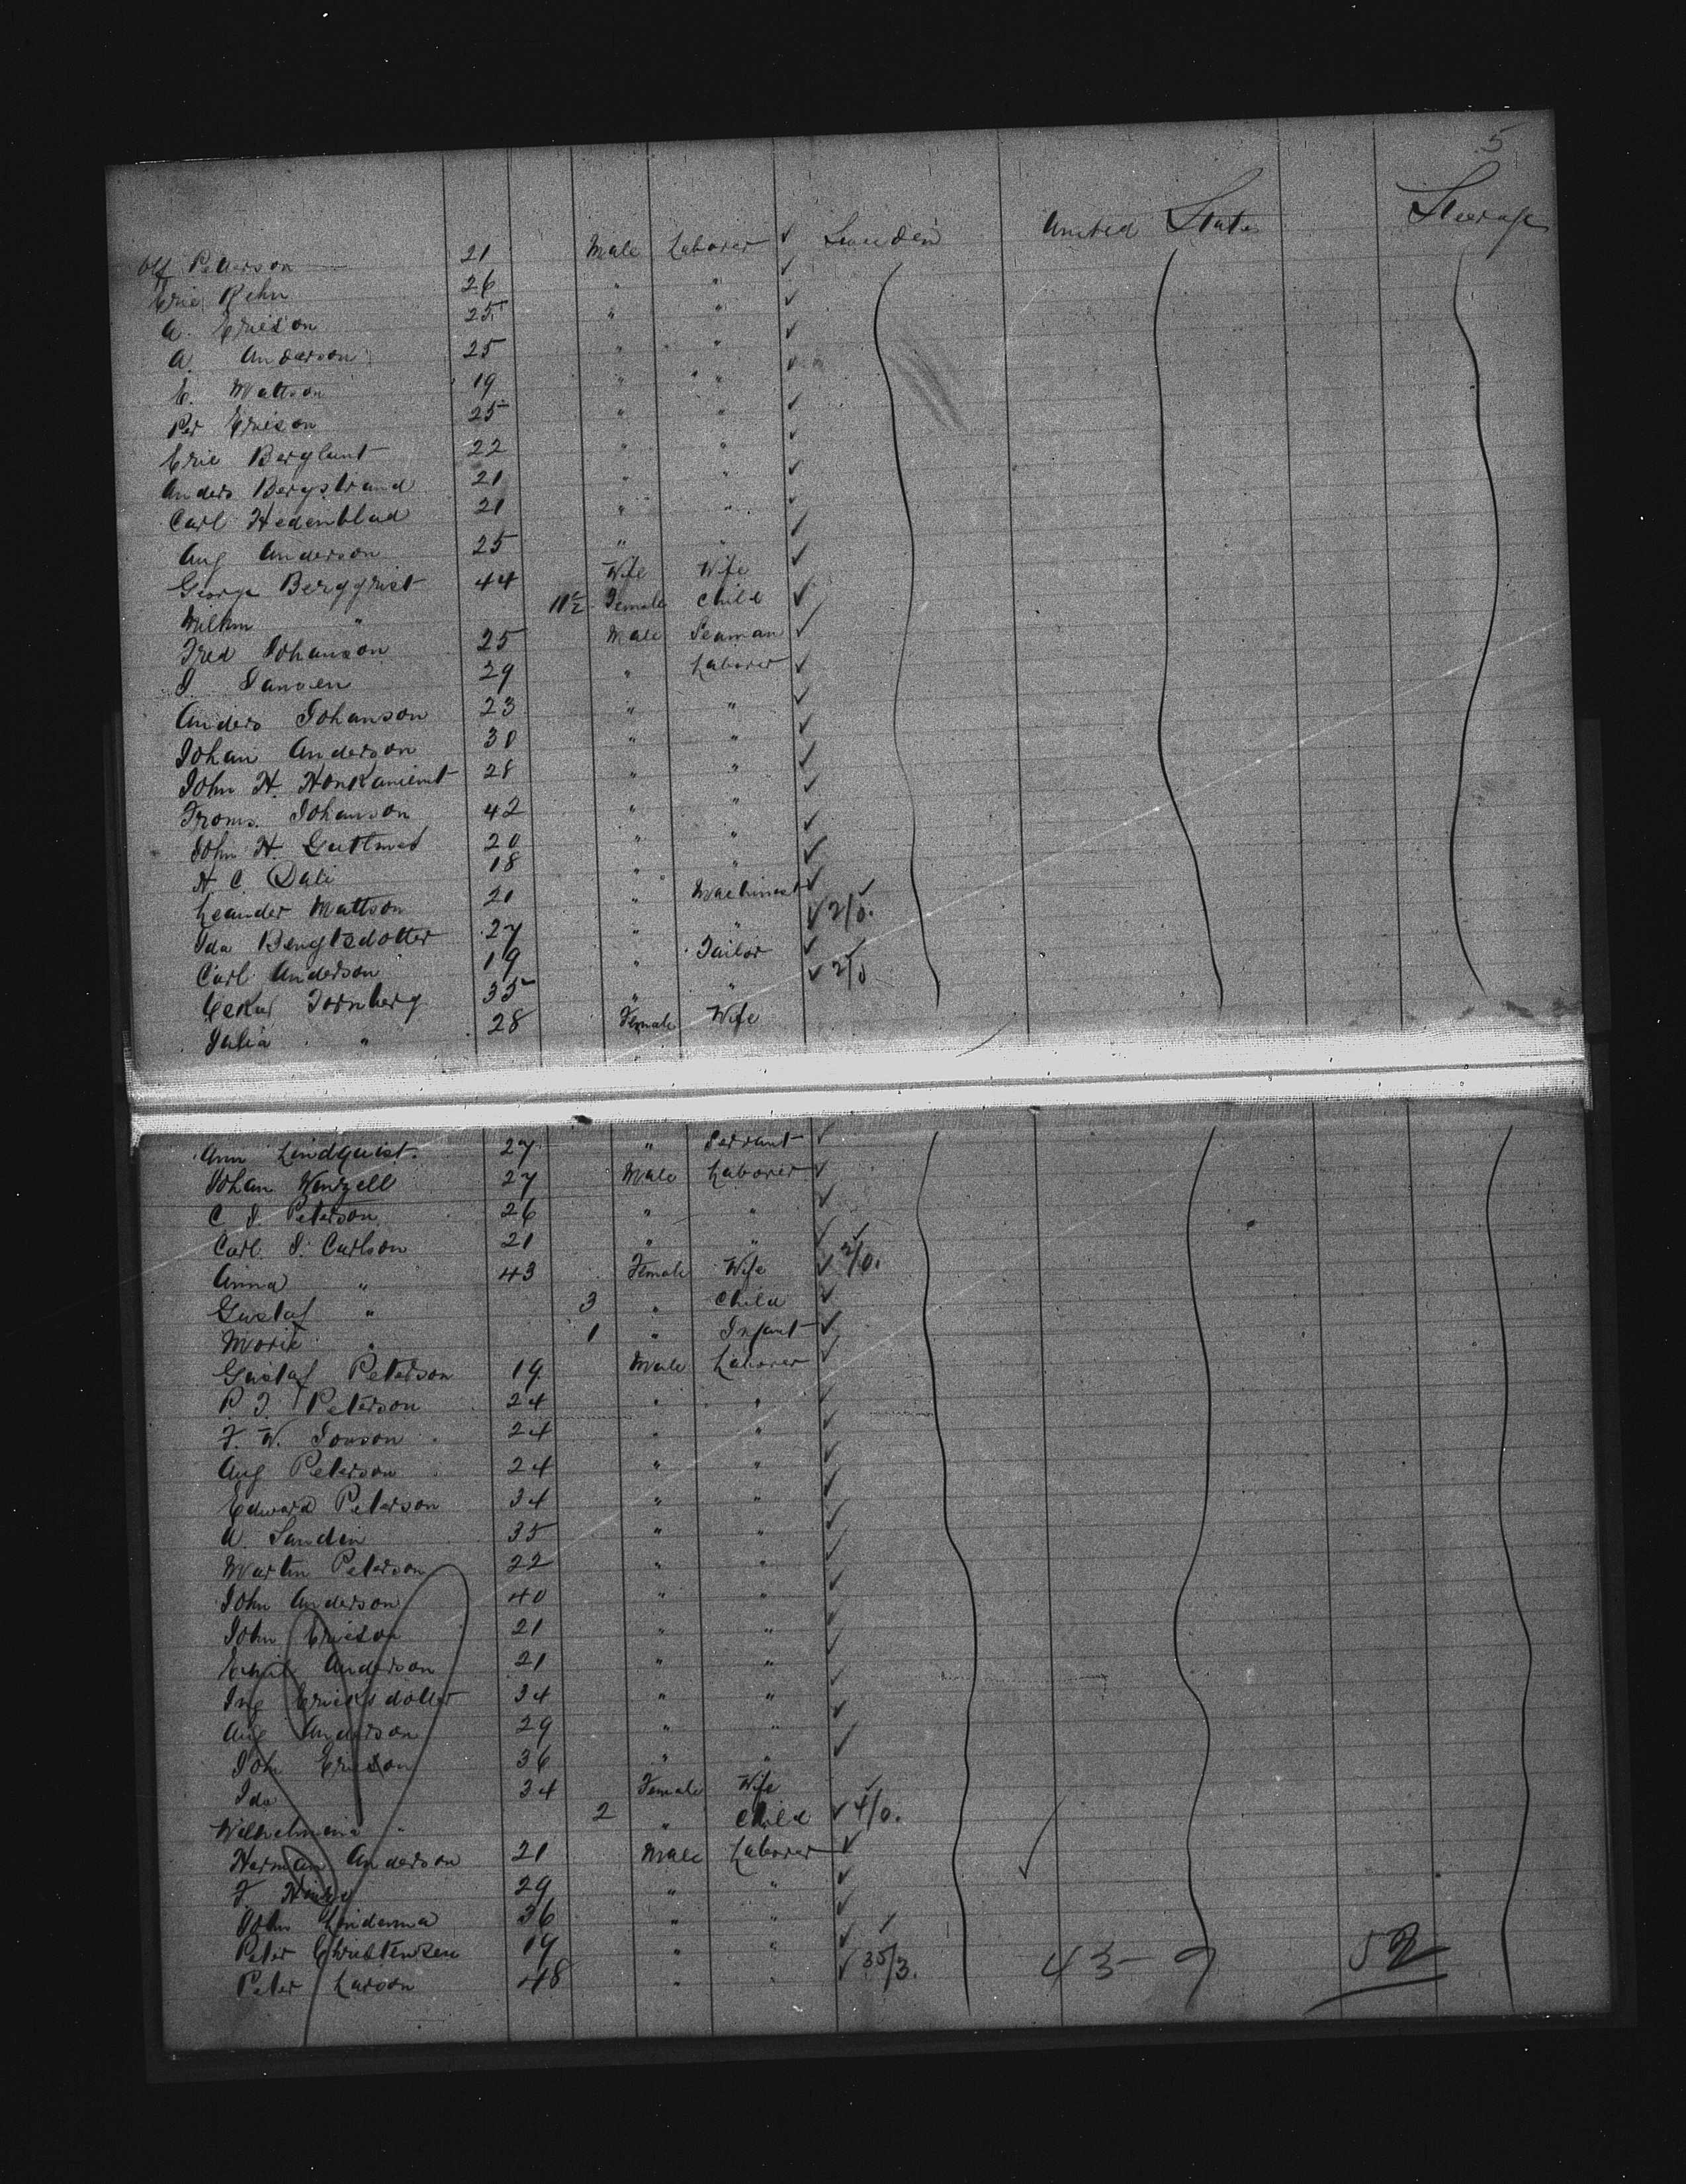 5
Olf Peterson 21 Male Laborer ✓ Sweeden United States Steerage
Eric Rehn 26 " " ✓
A. Ericson 25 " " ✓
A. Anderson 25 " " ✓
E. Mattson 19 " " ✓
Per Ericson 25 " " ✓
Eric Berglunt 22 " " ✓
Anders Bergstrand 21 " " ✓
Carl Hedenblad 21 " " ✓
Aug Anderson 25 " " ✓
George Bergqvist 44 Wife Wife ✓
Wilhm " 11 Female Child ✓
Fred Johanson 25 Male Seaman ✓
J. Jansen 29 " Laborer ✓
Anders Johanson 23 " " ✓
Johan Anderson 30 " " ✓
John H. Honkaniemt 28 " " ✓
Froms. Johanson 42 " " ✓
John H. 20 " " ✓
H. C. 18 " " ✓
Leander Mattson 21 " Machinest ✓
Ida Bengtsdotter 27 " " ✓ 2/0.
Carl Anderson 19 " Tailor ✓
Oskar Tornberg 35 " " ✓ 2/0
Julia " 28 Female Wife
Ann Lindquist 27 " Servant ✓
Johan Wenzell 27 Male Laborer ✓
C. J. Peterson 26 " " ✓
Carl J. Carlson 21 " " ✓
Anna " 43 Female Wife ✓ 2/0.
Gustaf " 3 " Child ✓
Morie " 1 " Infant ✓
Gustaf Peterson 19 Male Laborer ✓
P. J. Peterson 24 " " ✓
F. W. Jonson 24 " " ✓
Aug Peterson 24 " " ✓
Edward Peterson 34 " " ✓
A. Sandin 35 " " ✓
Martin Peterson 22 " " ✓
John Anderson 40 " " ✓
John Ericson 21 " " ✓
Emil Anderson 21 " " ✓
Ing Ericksdotter 34 " " ✓
Aug Anderson 29 " " ✓
Joh Ericson 36 " " ✓
Ida 34 Female Wife
Wilhelmina " 2 " Child ✓ 4/0.
Herman Anderson 21 Male Laborer ✓
F. 29 " " ✓
John Lindema 36 " " ✓
Peter Christensen 19 " " ✓
Peter Larson 48 " " ✓ 35/3. 43 - 9 52